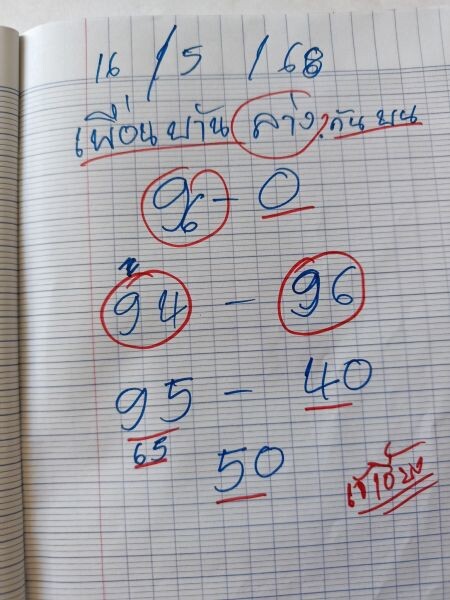 16 / 5 / 68
เพื่อนบ้าน ล่าง กันบน
9 - 0
94 - 96
95 - 40
65
50